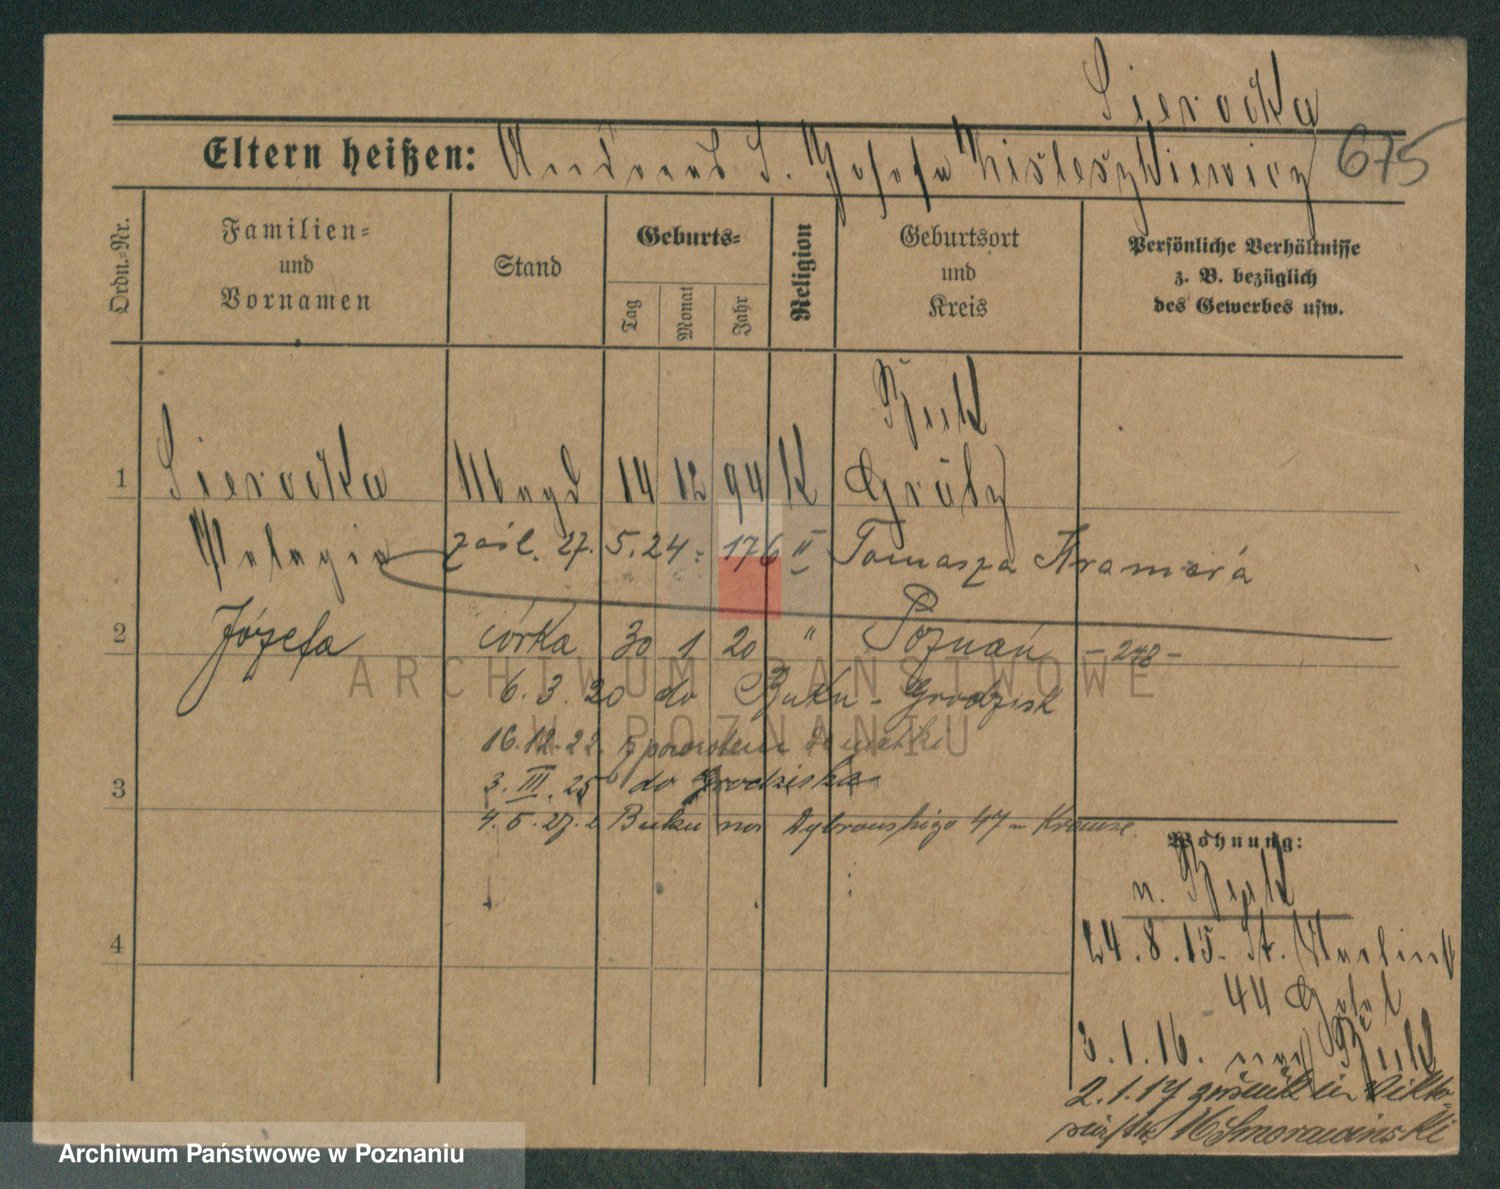 Sierocka
Eltern heißen: Andreas S. Josefa 675
Ordn.-Nr.
Familien- und Vornamen
Stand
Geburts-
Tag
Monat
Jahr
Religion
Geburtsort und Kreis
Persönliche Verhältnisse
z. B. bezüglich
des Gewerbes usw.
Buk
1 Sierocka Magd 14 12 94 K Grätz
Pelagia zaśl. 27. 5. 24 176 II Tomasza Kramera
2 Józefa córka 30 1 20 " Poznań - 248 -
6. 3. 20 do Buku - Grodzisk
16. 12. 22. z powrotem do matki
3 3. III. 25 do Grodziska
4. 5. 27. z Buku 47 Krause
Wohnung:
v. Buk
4
24. 8. 15. St. Martinst
44
3. 1. 16. nach Buk
2. 1. 17 zurück in Vikto-
16 Smorawinski
ARCHIWUM PAŃSTWOWE
W POZNANIU
Archiwum Państwowe w Poznaniu